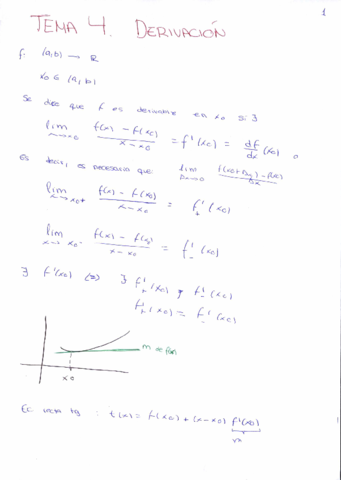 1
TEMA 4. DERIVACIÓN
f: (a,b) → R
x0 ∈ (a,b)
Se dice que f es derivable en x0 si ∃
lim x→x0 f(x) - f(x0) / x - x0 = f'(x0) = df/dx (x0) o
es decir, es necesario que lim f(x0+ ) - f(x0)
lim x→x0+ f(x) - f(x0) / x - x0 = f'+ (x0)
lim x→x0- f(x) - f(x0) / x - x0 = f'- (x0)
∃ f'(x0) ∃ f'+ (x0) y f'- (x0)
f'+ (x0) = f'- (x0)
m
x0
Ec recta tg : t(x) = f(x0) + (x-x0) f'(x0)